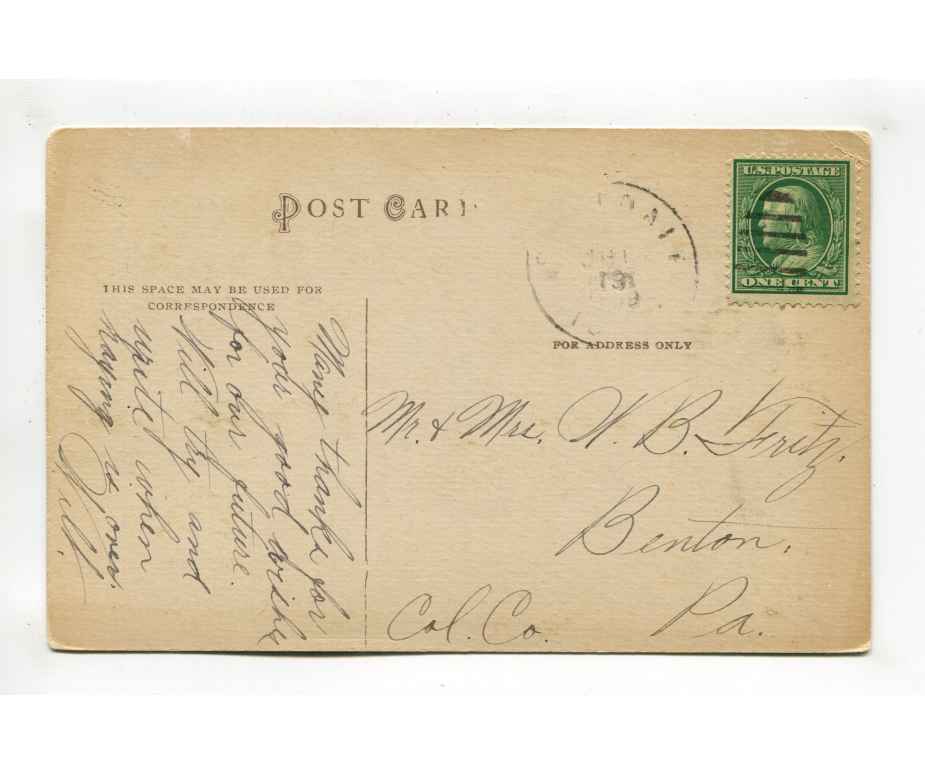 POST CARD
U.S. POSTAGE
ONE CENT
THIS SPACE MAY BE USED FOR
CORRESPONDENCE
FOR ADDRESS ONLY
Many thanks for
your good wishes
for our future.
Will try and
write when
haying is over.
Mr. & Mrs. W. B. Fritz.
Benton.
Col. Co. Pa.